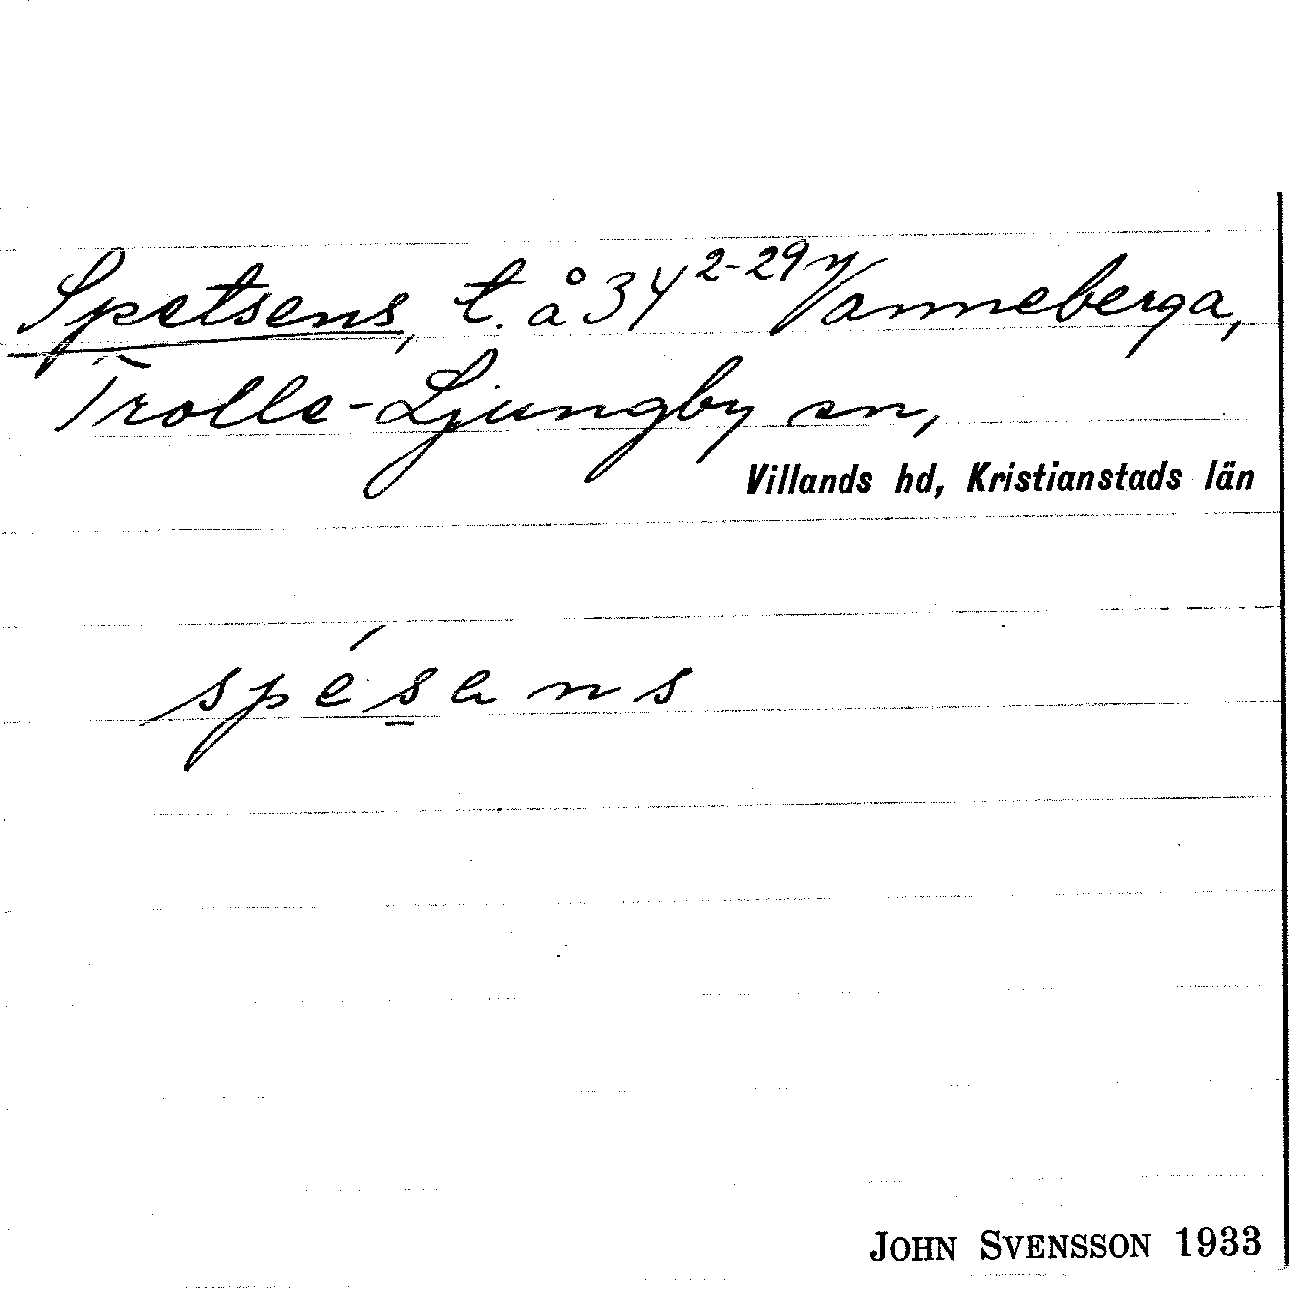 Spetsens, t. å 34 2-29 Vanneberga,
Trolle-Ljungby sn,
Villands hd, Kristianstads län
spésens
JOHN SVENSSON 1933